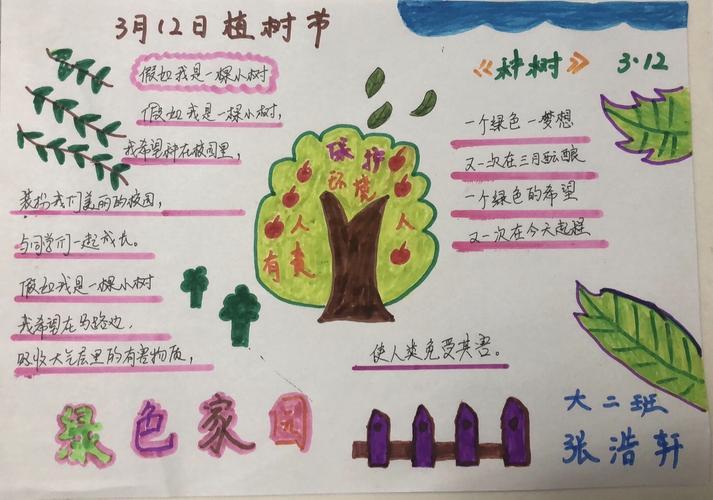 3月12日植树节
假如我是一棵小树
假如我是一棵小树，
我希望种在校园里，
装扮我们美丽的校园，
与同学们一起成长。
假如我是一棵小树
我希望在马路边，
吸收大气层里的有害物质，
使人类免受其害。
保护
环境
人人
有责
《种树》 3·12
一个绿色一梦想
又一次在三月酝酿
一个绿色的希望
又一次在今天起程
绿色家园
大二班
张浩轩